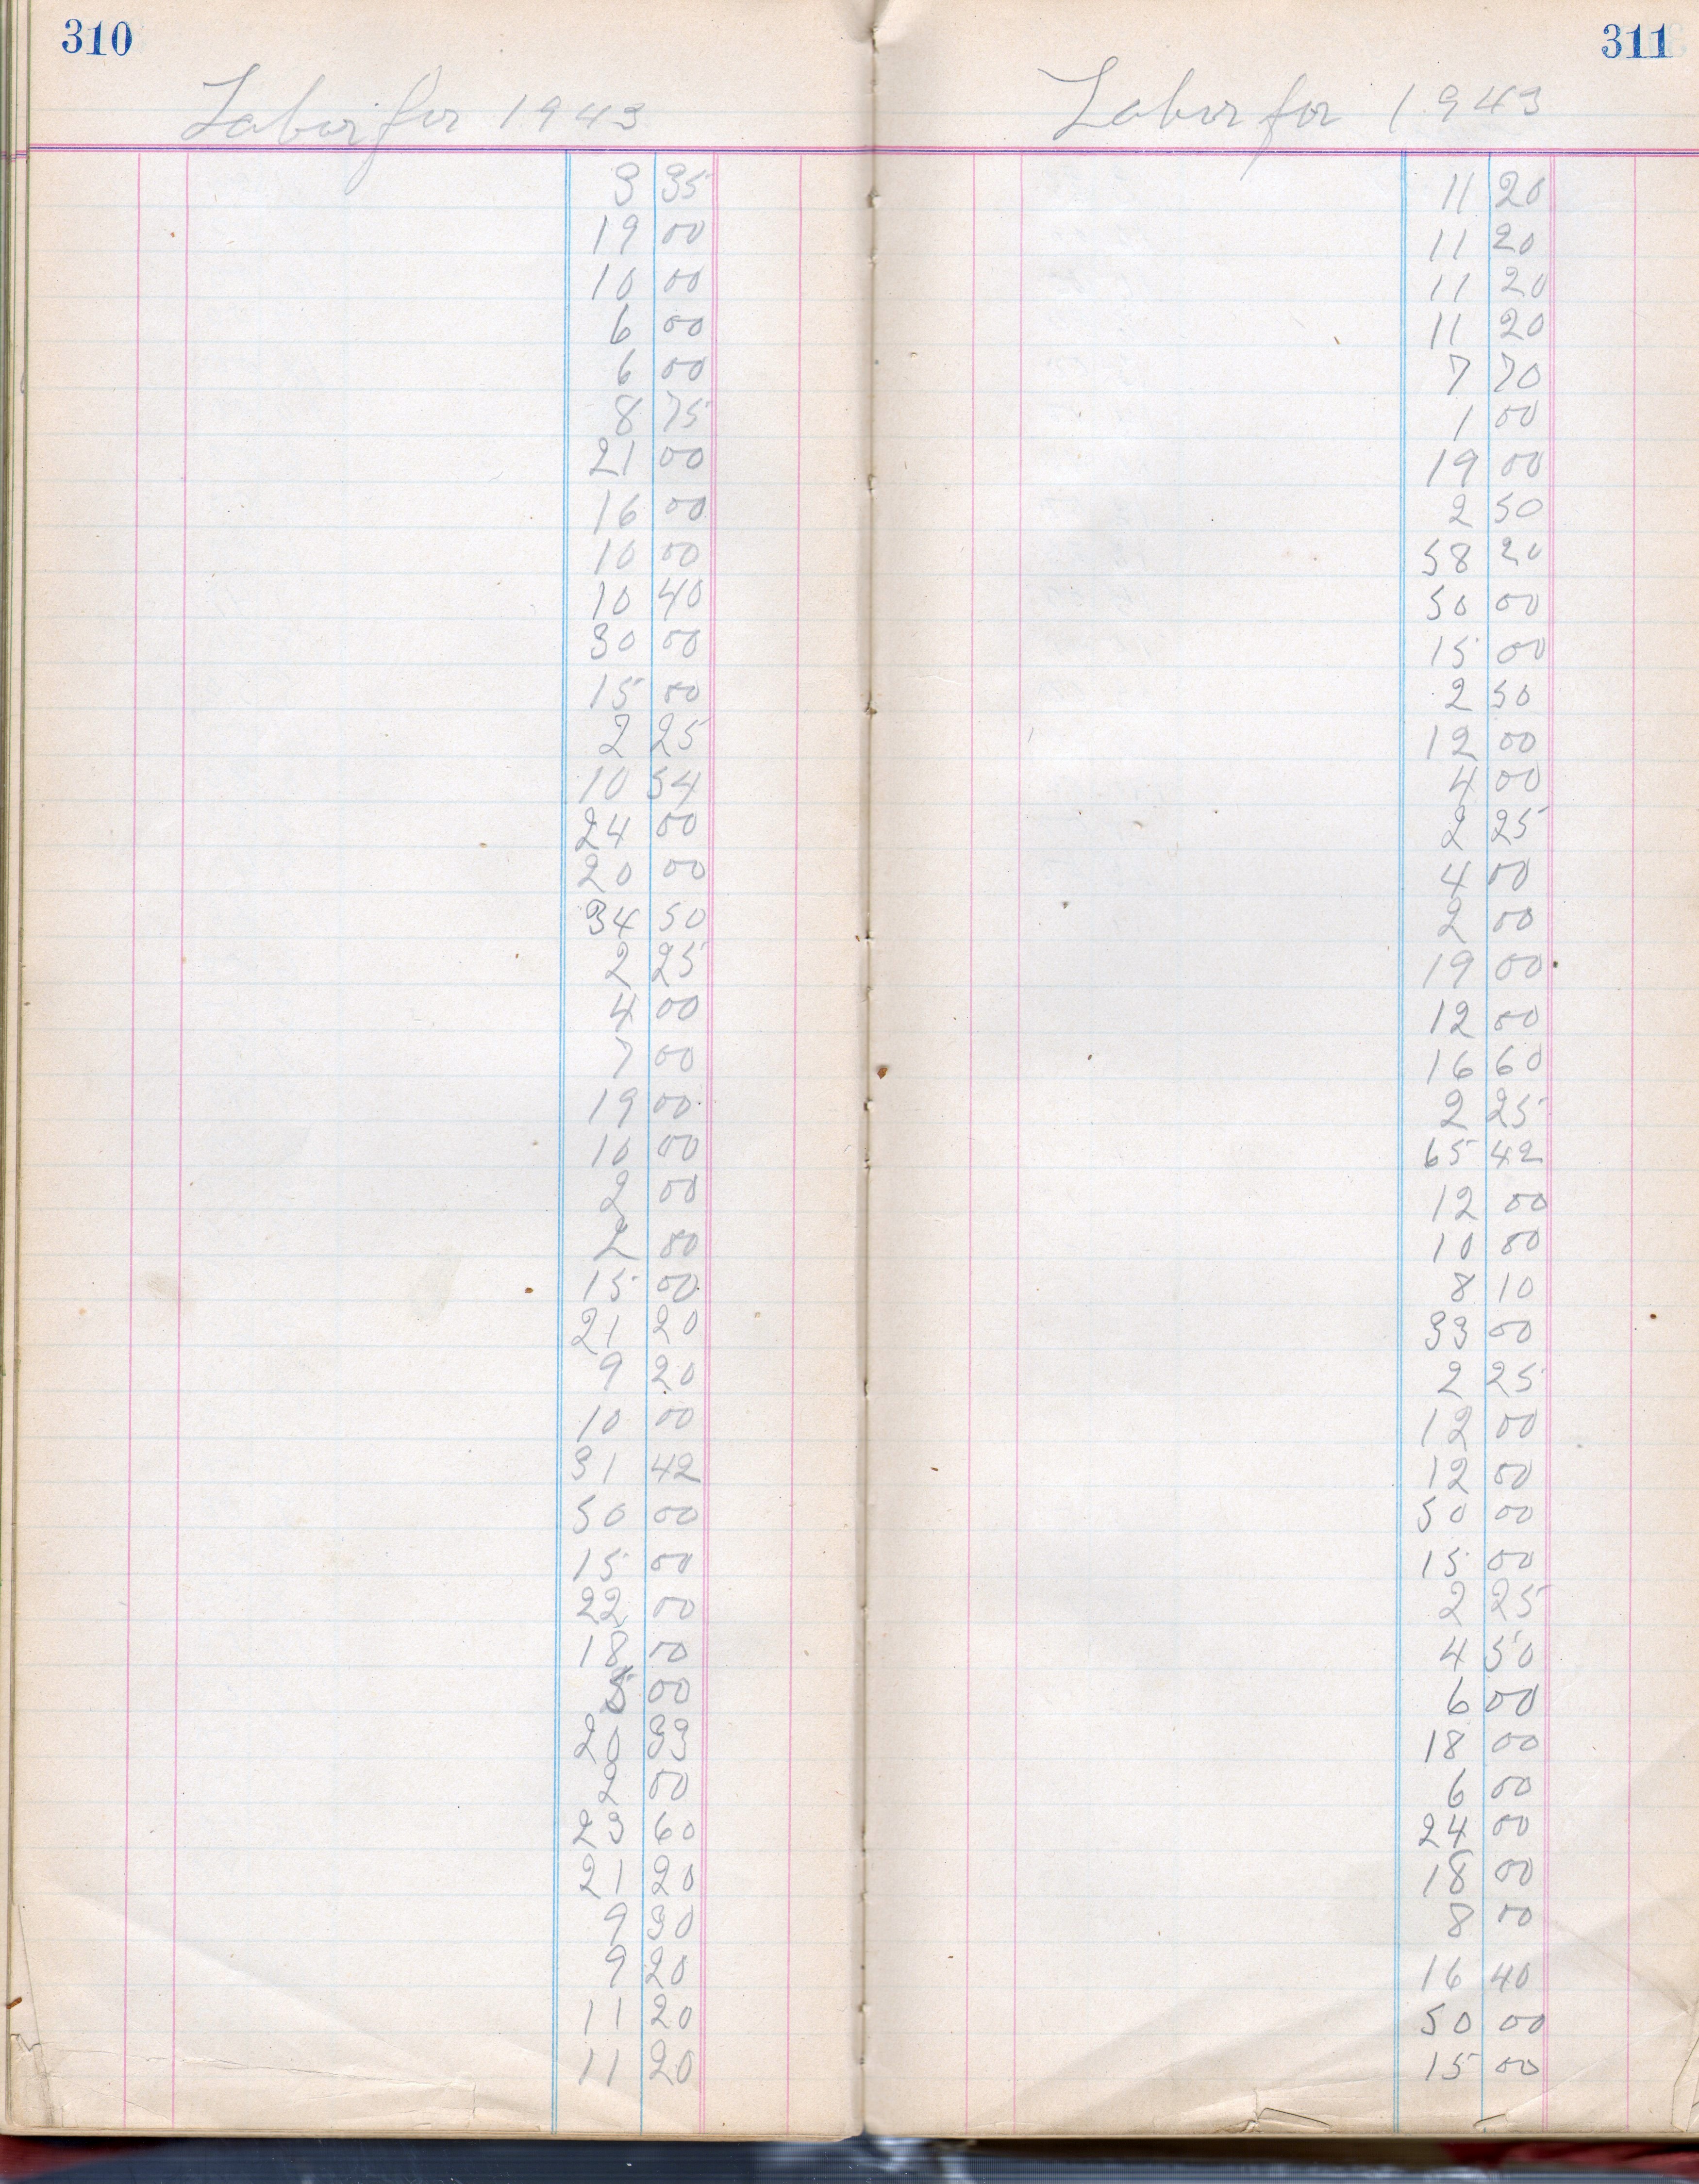 310
Labor for 1943
3 35
19 00
10 00
6 00
6 00
8 75
21 00
16 00
10 00
10 40
30 00
15 00
2 25
10 54
24 00
20 00
34 50
2 25
4 00
7 00
19 00
10 00
2 00
2 00
15 00
21 20
9 20
10 00
31 42
50 00
15 00
22 00
18 00
00
20 33
2 00
23 60
21 20
9 30
9 20
11 20
11 20
311
Labor for 1943
11 20
11 20
11 20
11 20
7 70
1 00
19 00
2 50
58 20
50 00
15 00
2 50
12 00
4 00
2 25
4 00
2 00
19 00
12 00
16 60
2 25
65 42
12 00
10 00
8 10
33 00
2 25
12 00
12 00
50 00
15 00
2 25
4 50
6 00
18 00
6 00
24 00
18 00
8 00
16 40
50 00
15 00